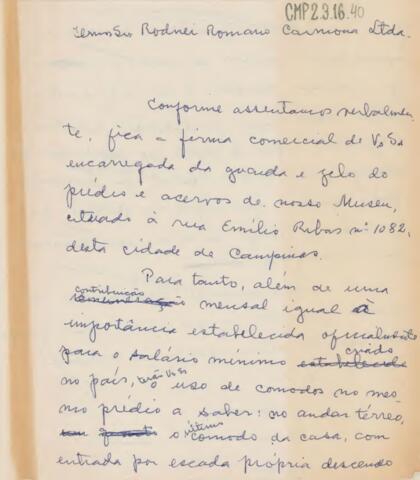 CMP2.3.16.40
Ilmos Srs Rodnei Romano Carmona Ltda.
Conforme assentamos verbalmen
te, fica a firma comercial de V. Sa
encarregada da guarda e zelo do
prédio e acervos de nosso Museu,
situado à rua Emílio Ribas nº 1082,
desta cidade de Campinas.
Para tanto, além de uma
contribuição
remuneração mensal igual à
importância estabelecida oficialmente
para o salário mínimo estabelecido criado
no país, terão V. Sas o uso de comodos no mes
mo prédio a saber: no andar térreo,
o último comodo da casa, com
entrada por escada própria descendo